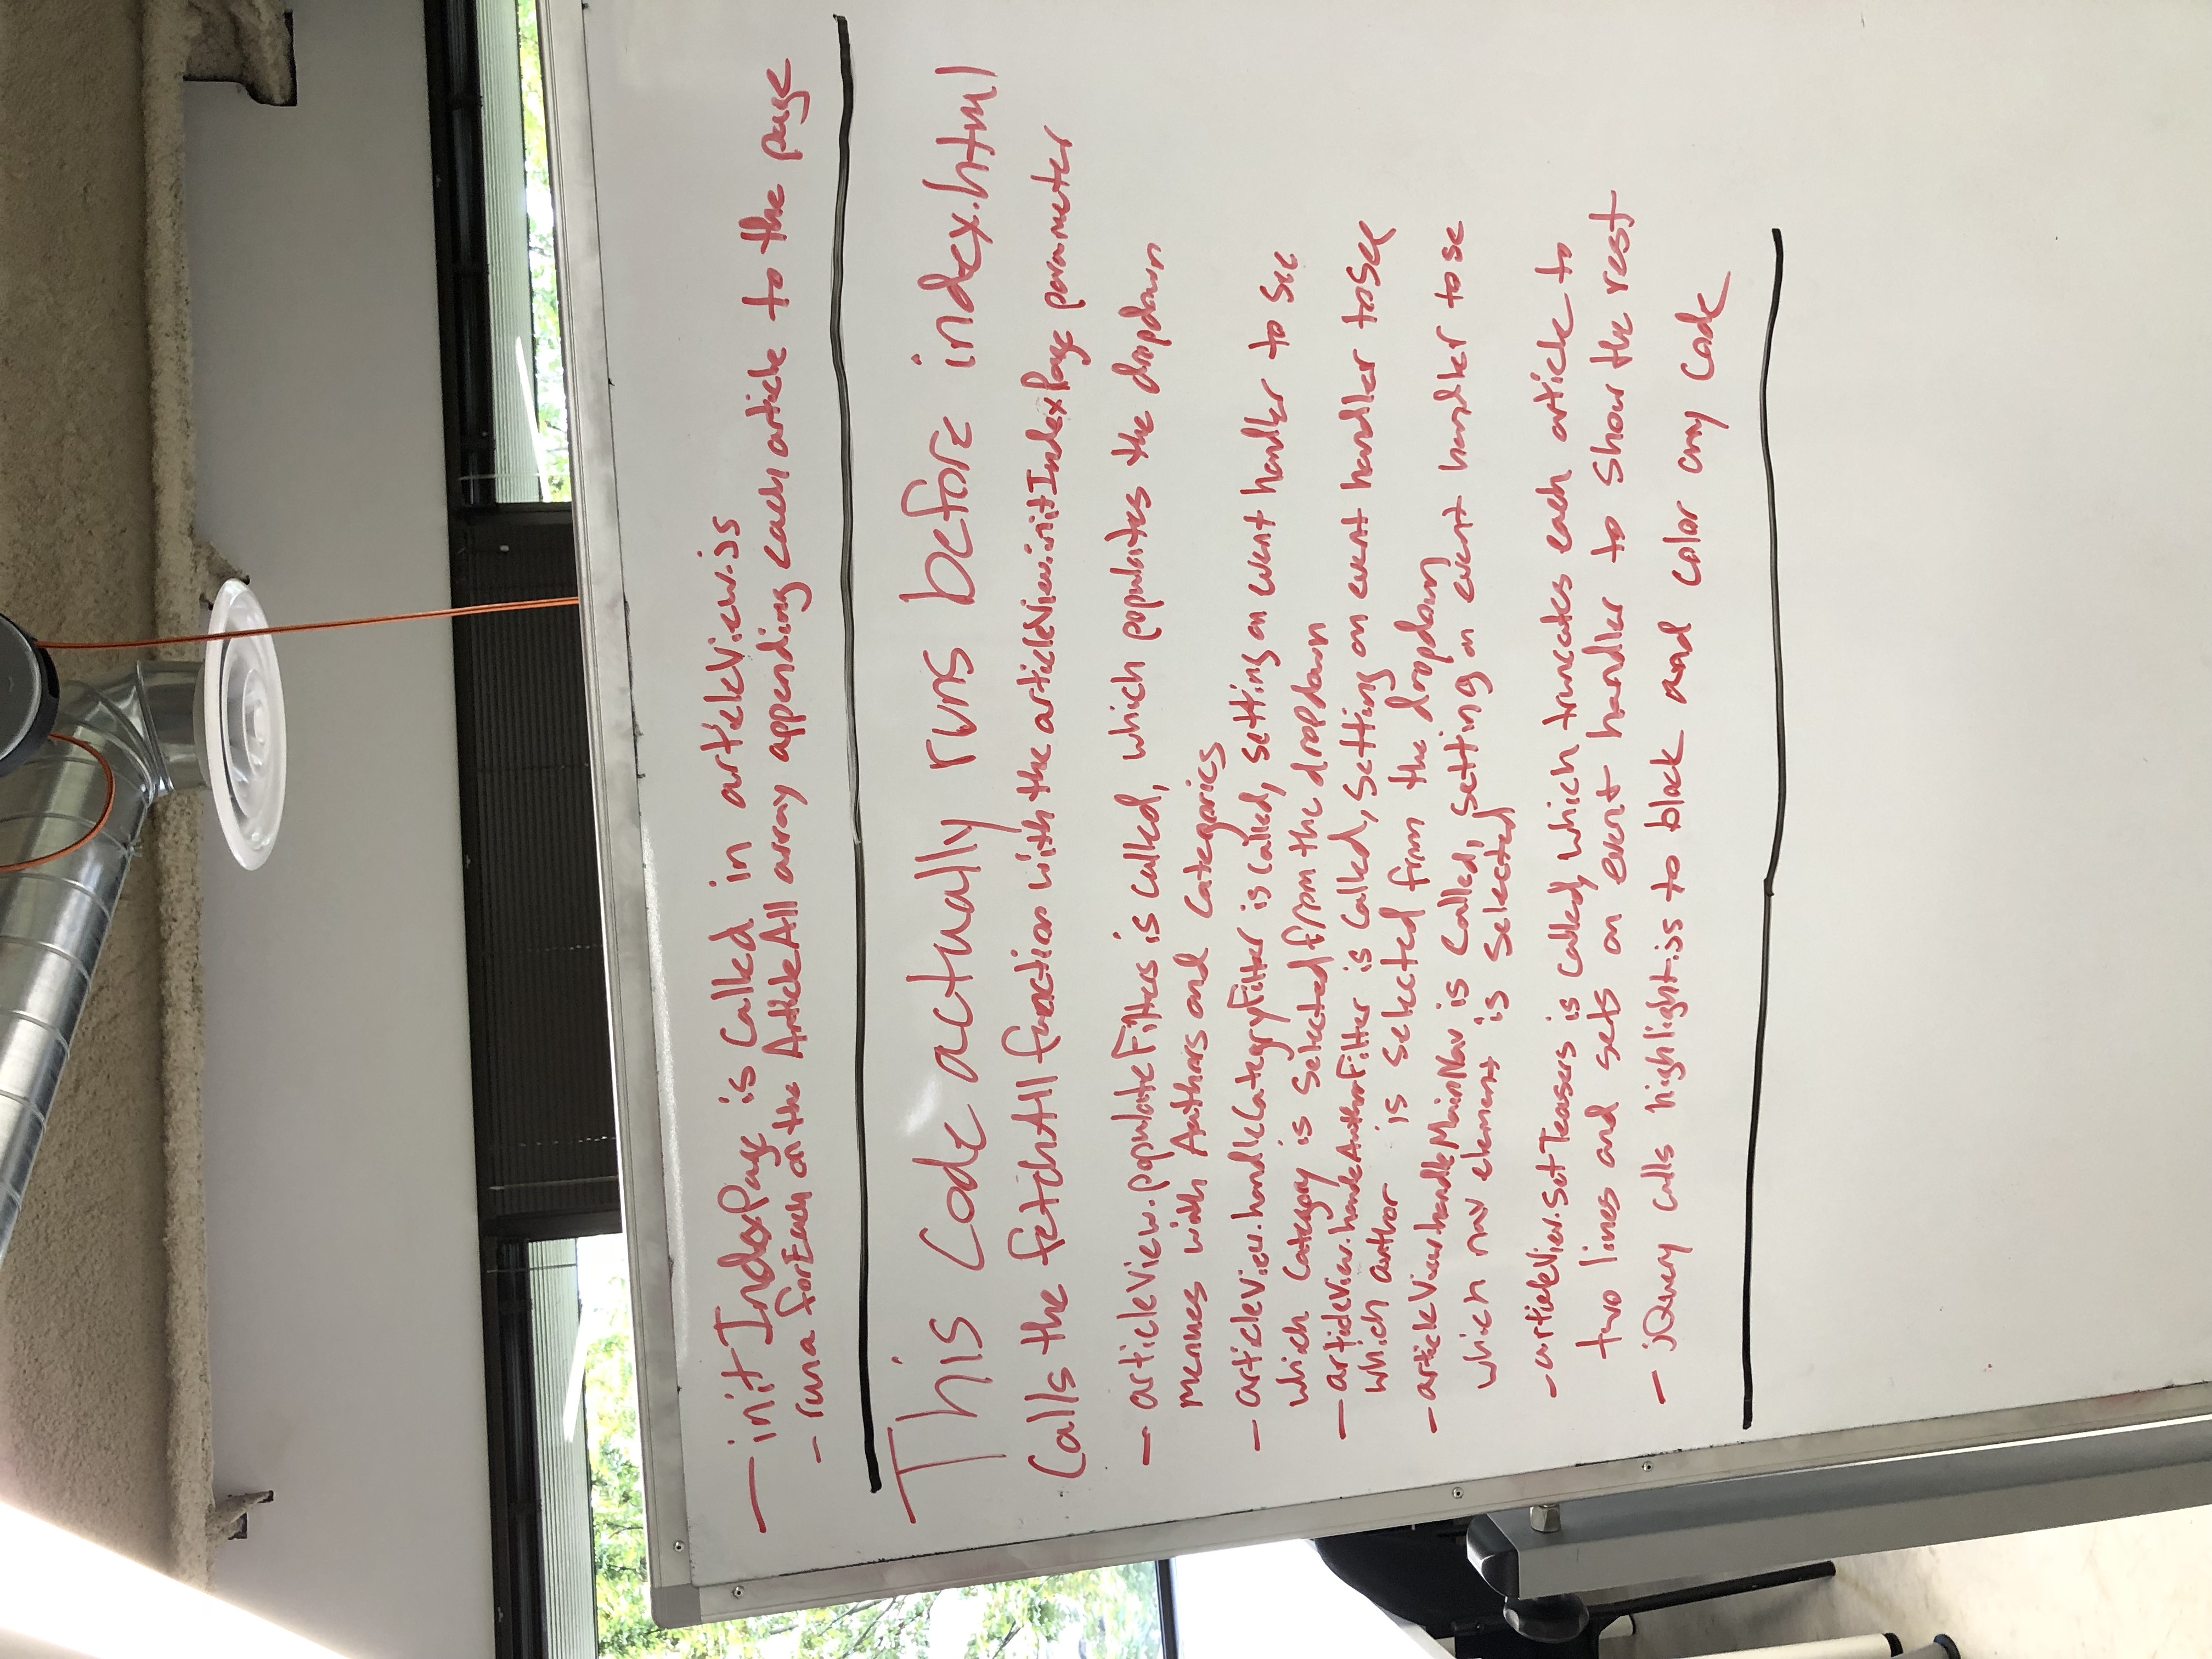 — initIndexPage is called in articleView.js
- run a forEach on the ArticleAll array appending each article to the page
This code actually runs before index.html
Calls the fetchAll function with the articleView.initIndexPage parameter
- articleView.populateFilters is called, which populates the dropdown
menues with Authors and Categories
- articleView.handleCategryFilter is called, setting an event handler to see
which Category is selected from the dropdown
- articleView.handleAuthorFilter is called, setting an event handler to see
which author is selected from the dropdown
- articleView.handleMainNav is called, setting an event handler to se
which nav element is selected
- articleView.setTeasers is called, which truncates each article to
two lines and sets an event handler to show the rest
- jQuery calls highlight.js to block and color any code